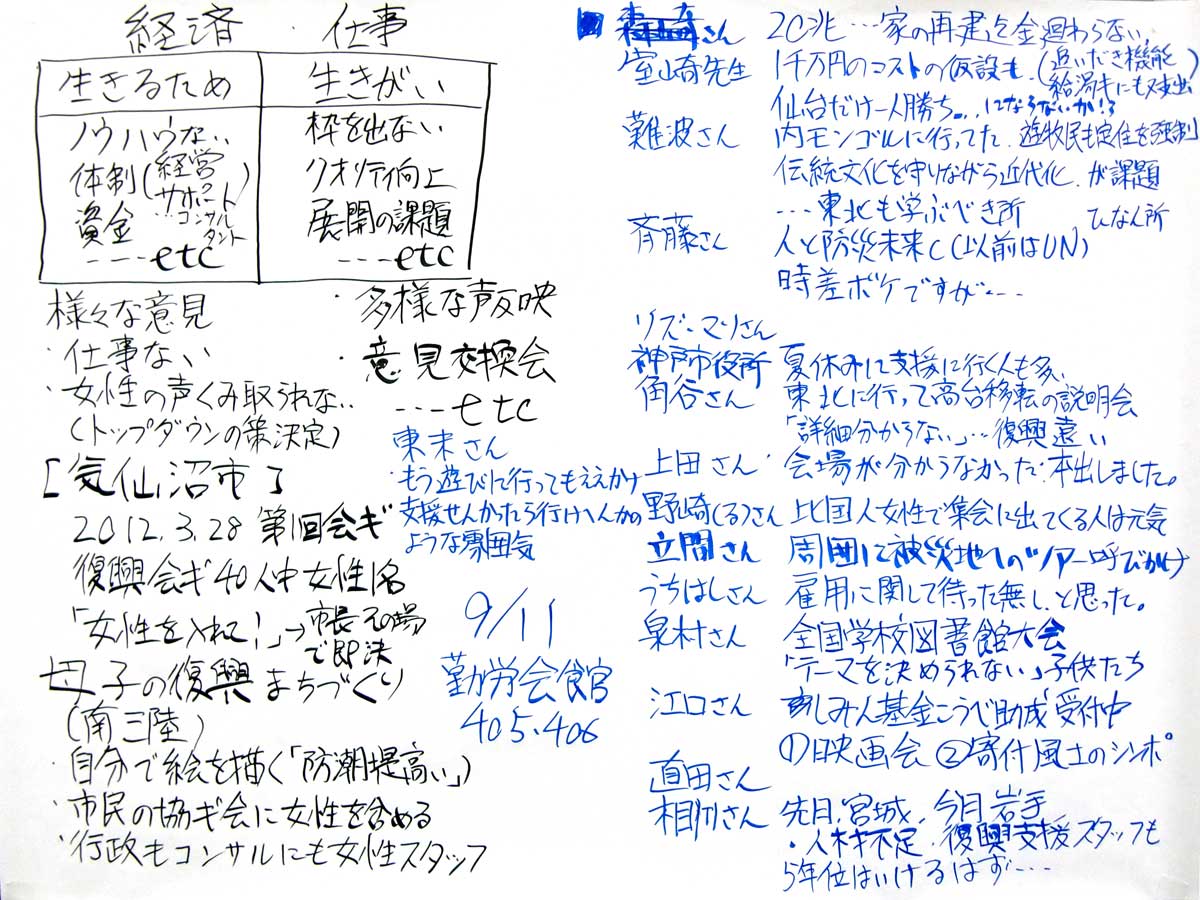 経済・仕事
生きるため
ノウハウない
体制(経営サポート)
…コンサルタント
資金
----etc
生きがい
枠を出ない
クオリティ向上
展開の課題
----etc
様々な意見
・仕事ない
・女性の声くみ取られない..
(トップダウンの策決定)
・多様な声反映
・意見交換会
----etc
[気仙沼市]
2012.3.28 第1回会ギ
復興会ギ40人中女性1名
「女性を入れて!」→市長その場で即決
母子の復興まちづくり
(南三陸)
・自分で絵を描く「防潮堤高い」)
・市民の協ギ会に女性を含める
・行政もコンサルにも女性スタッフ
東末さん
・もう遊びに行ってもええかけ
支援せんかったら行けへんかの
ような雰囲気
9/11
勤労会館
405・406
さん 20兆…家の再建を金廻わらない
室崎先生 1千万円のコストの仮設も(追いだき機能)
給湯キにも又支出
仙台だけ一人勝ち…にならないか!?
難波さん 内モンゴルに行ってた.遊牧民も定住を強制
伝統文化を守りながら近代化.が課題
---東北も学ぶべき所
ひなん所
斉藤さん 人と防災未来C(以前はUN)
時差ボケですが----
リズ・マリさん
神戸市役所 夏休みに支援に行く人も多い
角谷さん 東北に行って高台移転の説明会
「詳細分からない」…復興遠い
上田さん・会場が分からなかった・本出しました。
野崎(る)さん 比国人女性で集会に出てくる人は元気
立間さん 周囲に被災地へのツアー呼びかけ
うちはしさん 雇用に関して待った無し、と思った。
泉村さん 全国学校図書館大会
「テーマを決められない」子供たち
江口さん しみん基金こうべ助成受付中
①映画会 ②寄付風土のシンポ
直田さん
相川さん 先月.宮城、今月岩手
・人材不足.復興支援スタッフも
5年位はいけるはず----